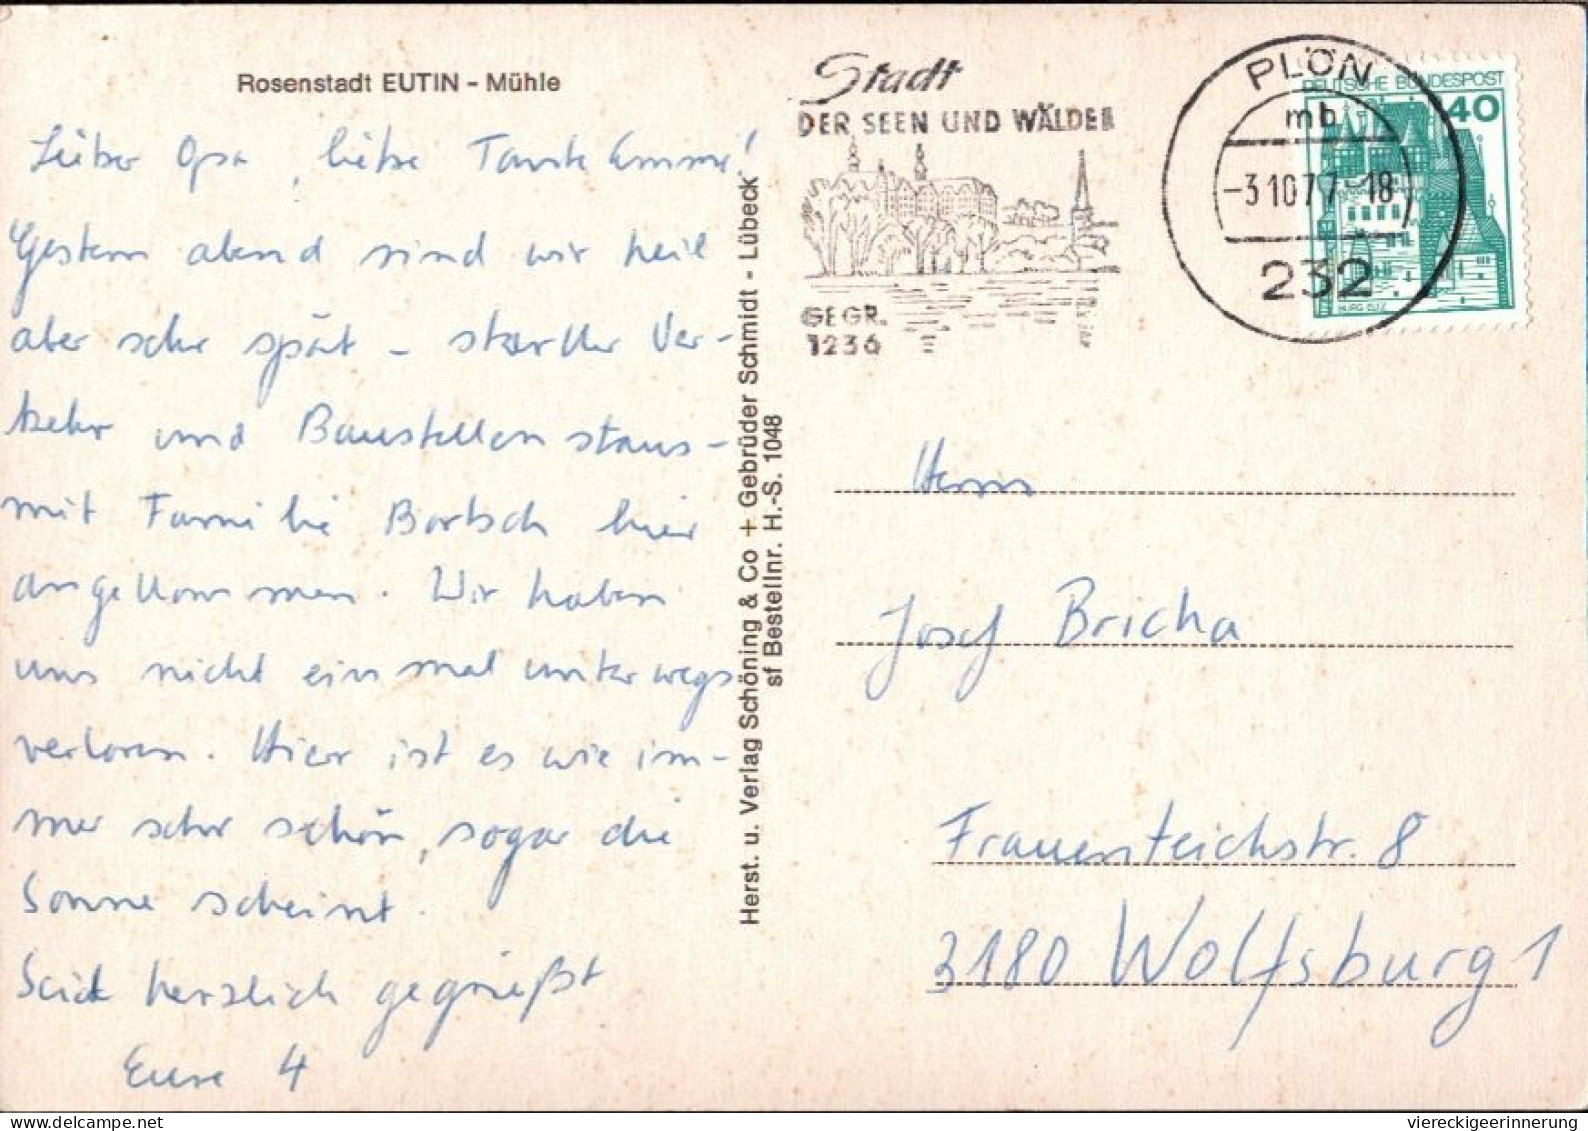 Rosenstadt EUTIN - Mühle
Lieber Opa, liebe Tante Emmi!
Gestern abend sind wir heil
aber sehr spät - starker Ver-
kehr und Baustellenstaus -
mit Familie Bartsch hier
angekommen. Wir haben
uns nicht einmal unterwegs
verloren. Hier ist es wie im-
mer sehr schön, sogar die
Sonne scheint.
Seid herzlich gegrüßt
Eure 4
Herst. u. Verlag Schöning & Co + Gebrüder Schmidt - Lübeck
sf Bestellnr. H.-S. 1048
Stadt
DER SEEN UND WÄLDER
GEGR.
1236
PLÖN
mb
-3.10.77-18
232
DEUTSCHE BUNDESPOST
40
BURG ELTZ
Herrn
Josef Bricha
Frauenteichstr. 8
3180 Wolfsburg 1
viereckigeerinnerung